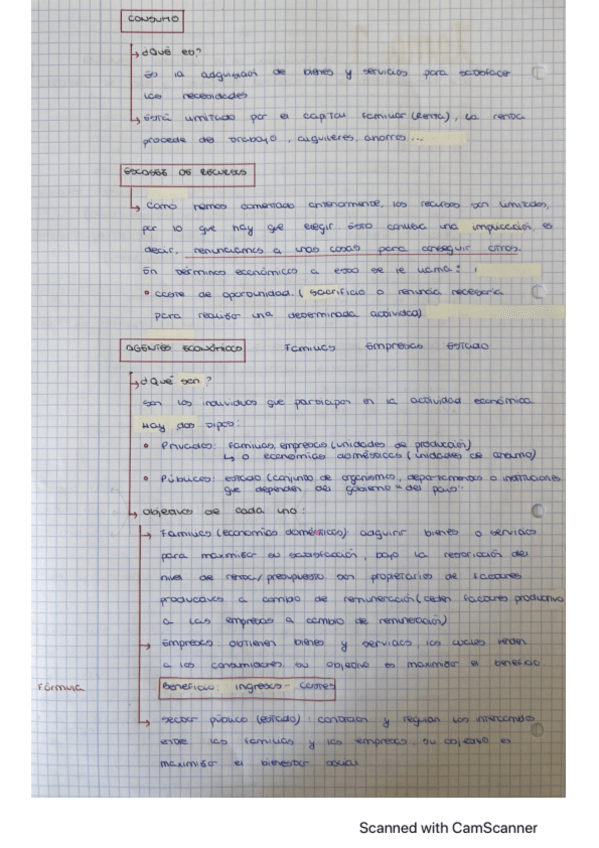 CONSUMO
¿Qué es?
Es la adquisición de bienes y servicios para satisfacer
las necesidades
Está limitado por el capital familiar (Renta), la renta
procede del trabajo, alquileres, ahorros...
ESCASEZ DE RECURSOS
Como hemos comentado anteriormente, los recursos son limitados,
por lo que hay que elegir. Esto conlleva una implicación, es
decir, renunciamos a unas cosas para conseguir otras.
En términos económicos a esto se le llama:
• coste de oportunidad. (sacrificio o renuncia necesaria
para realizar una determinada actividad)
AGENTES ECONÓMICOS familias empresas estado
¿Qué son?
son los individuos que participan en la actividad económica
Hay dos tipos:
• Privados: familias, empresas (unidades de producción)
↳ o economías domésticas (unidades de consumo)
• Públicos: estado (conjunto de organismos, departamentos o instituciones
que dependen del gobierno "del país".
Objetivos de cada uno:
Familias (economías domésticas): adquirir bienes o servicios
para maximizar su satisfacción, bajo la restricción del
nivel de renta/presupuesto son propietarios de factores
productivos a cambio de remuneración (ceden factores productivos
a las empresas a cambio de remuneración)
Empresas: obtienen bienes y servicios, los cuales venden
a los consumidores. su objetivo es maximizar el beneficio
Fórmula Beneficio: ingresos - costes
Sector público (estado): controlan y regulan los intercambios
entre las familias y las empresas. su objetivo es
maximizar el bienestar social
Scanned with CamScanner